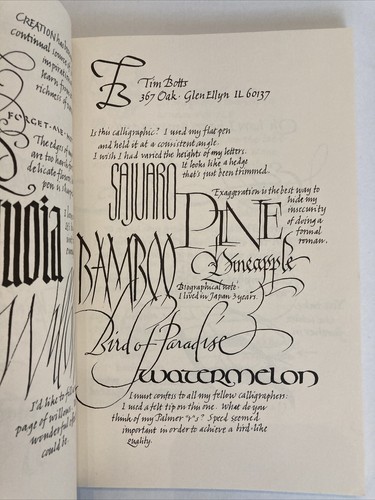 CREATION has been
continual source of
inspiration
learn from
richness of
FORGET-ME-NOT
The edges of
are too hard
delicate flower
pen is sharp
uoia
I'd like to fill a
page of willow
wonderful
could be.
TB
Tim Botts
367 Oak · Glen Ellyn IL 60137
Is this calligraphic? I used my flat pen
and held it at a consistent angle.
I wish I had varied the heights of my letters.
It looks like a hedge
that's just been trimmed.
SAJUARO
Exaggeration is the best way to
hide my
insecurity
of doing a
formal
roman.
PINE
BAMBOO
Pineapple
Biographical note:
I lived in Japan 3 years.
Bird of Paradise
WATERMELON
I must confess to all my fellow calligraphers:
I used a felt tip on this one. What do you
think of my Palmer "r's"? Speed seemed
important in order to achieve a bird-like
quality.